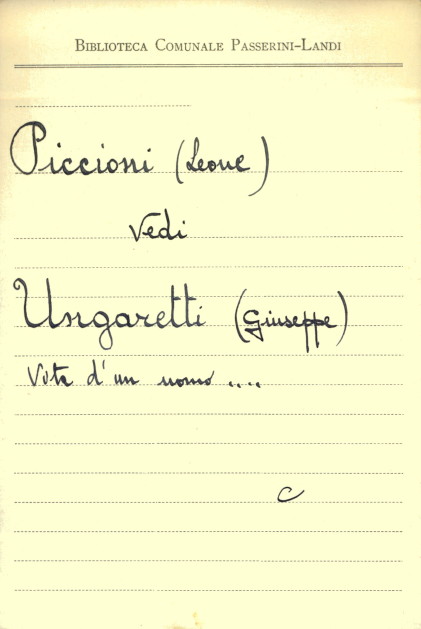 BIBLIOTECA COMUNALE PASSERINI-LANDI
Piccioni (Leone)
Vedi
Ungaretti (Giuseppe)
Vita d'un uomo ....
C